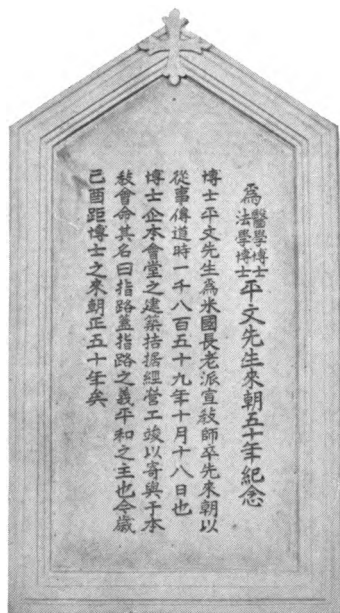 為醫學博士法學博士平文先生來朝五十年紀念
博士平文先生為米國長老派宣敎師卒先來朝以
從事傳道時一千八百五十九年十月十八日也
博士企本會堂之建築拮据經營工竣以寄與于本
敎會命其名曰指路蓋指路之義平和之主也今歲
己酉距博士之來朝正五十年矣